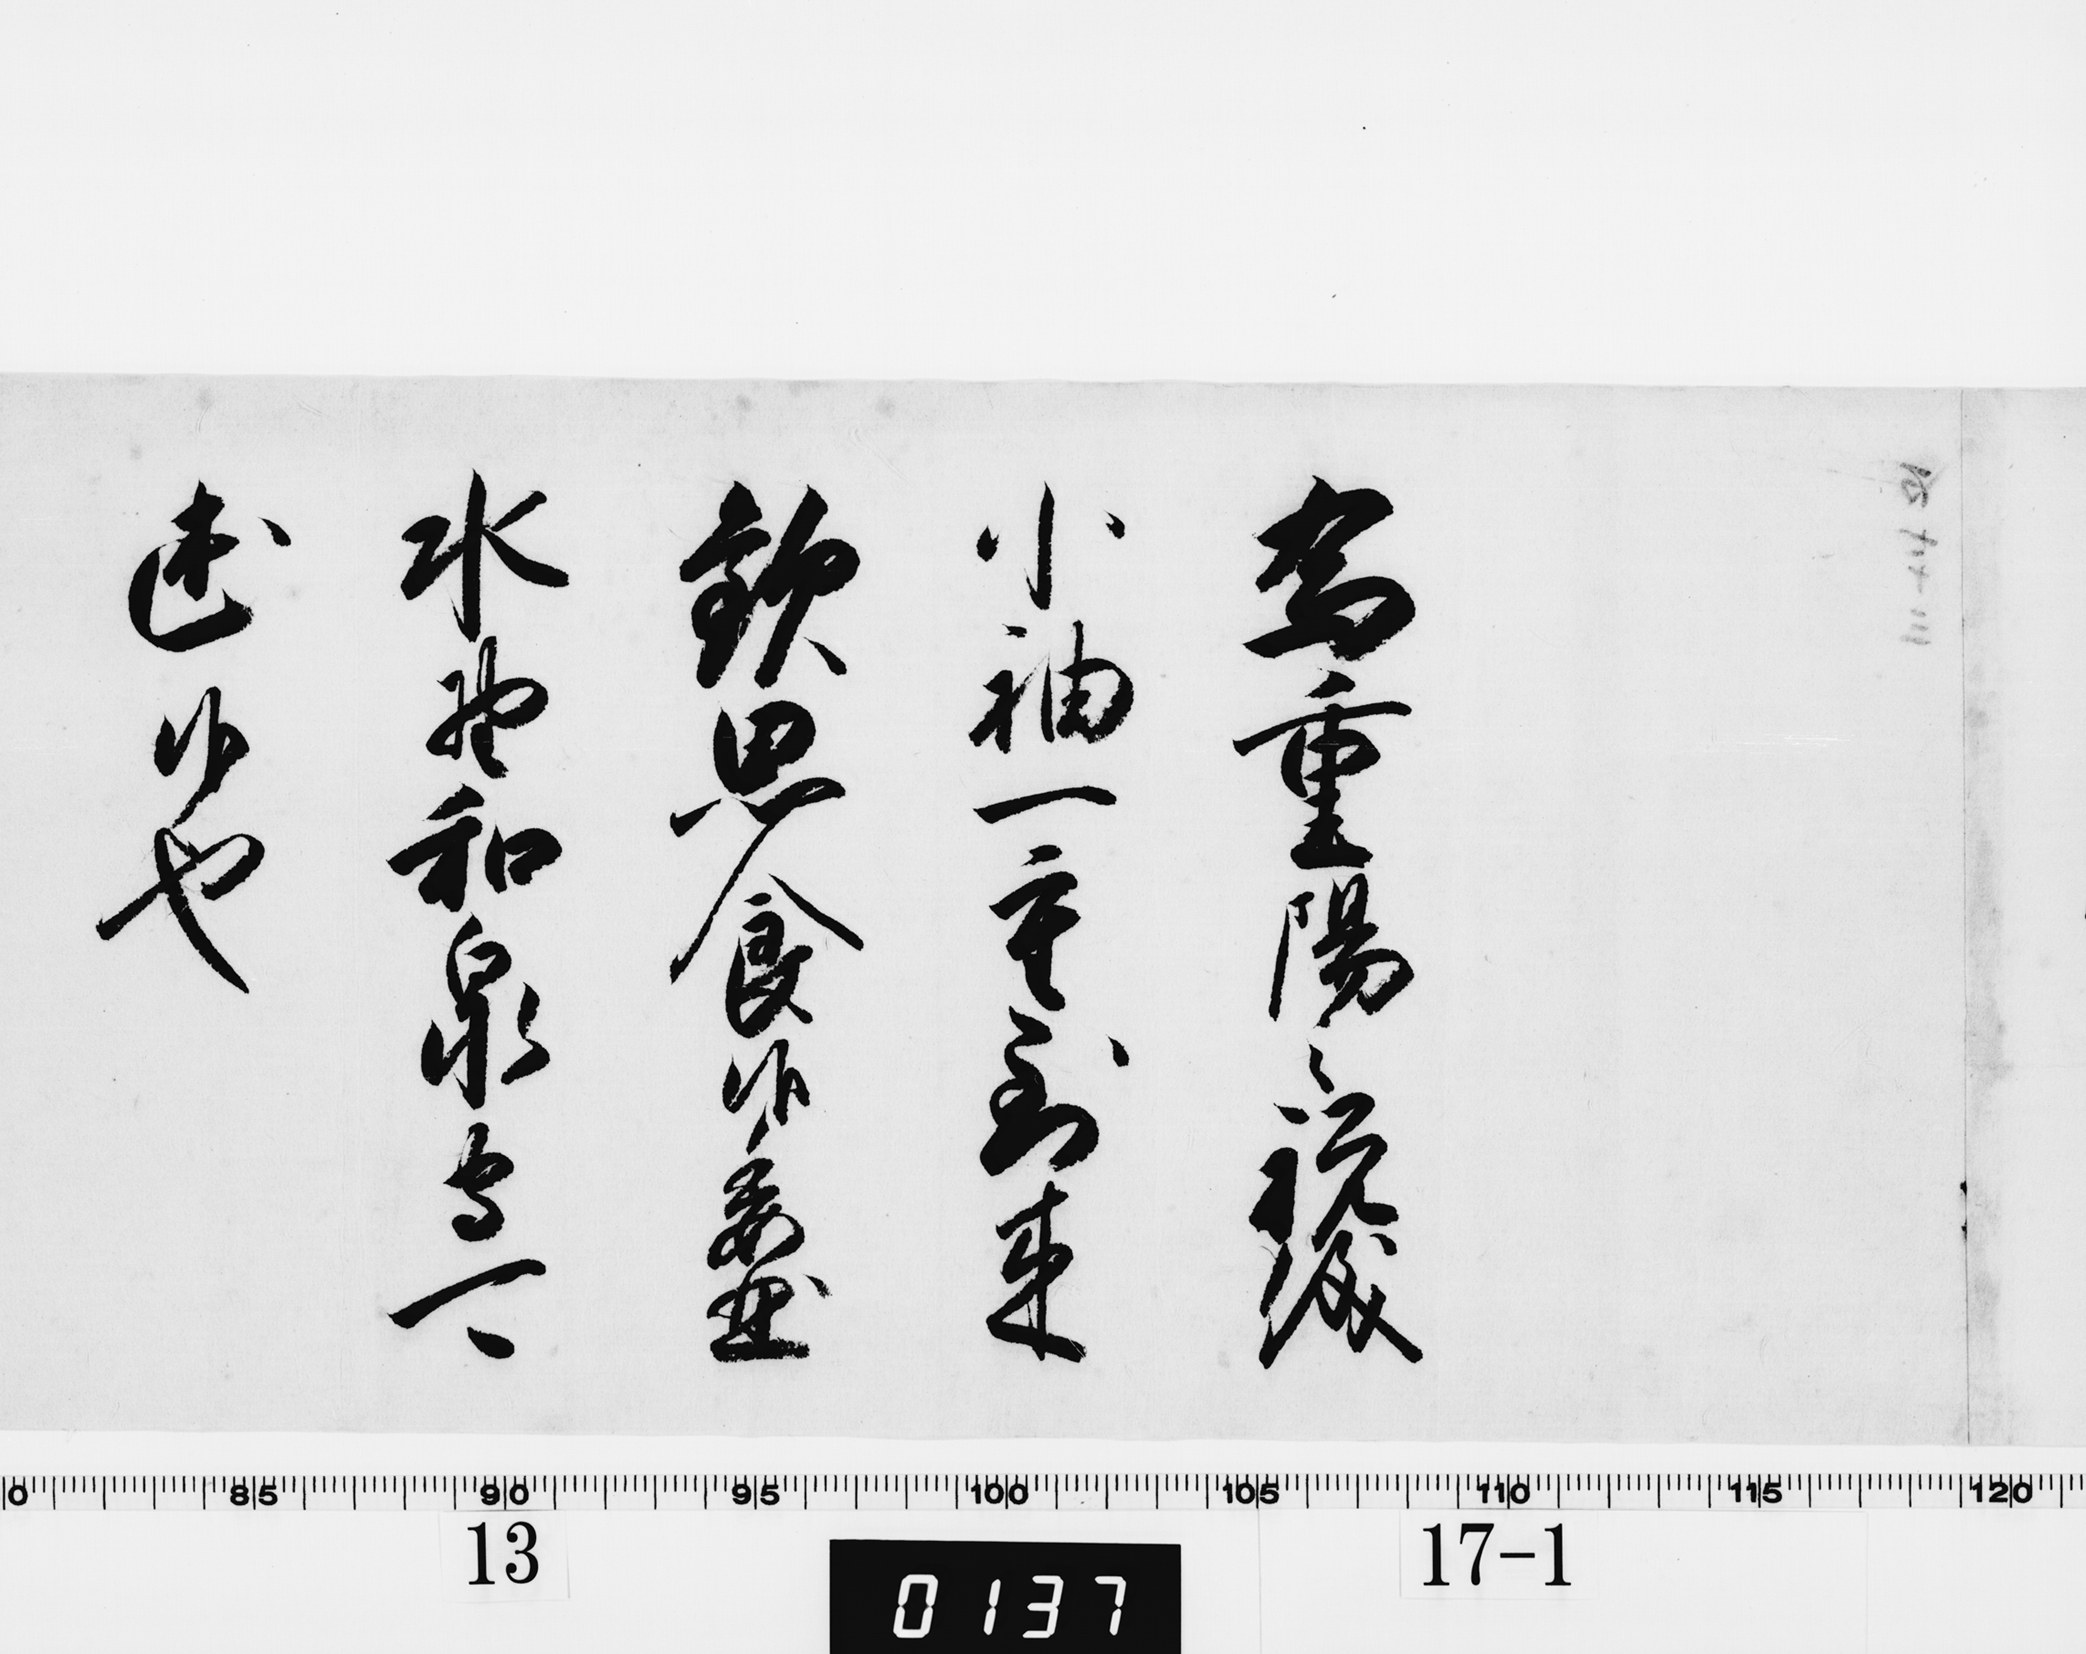 為重陽之祝儀
小袖一重到来
歓思食候委曲
水野和泉守可
述候也
80 85 90 95 100 105 110 115 120
13
0137
17-1